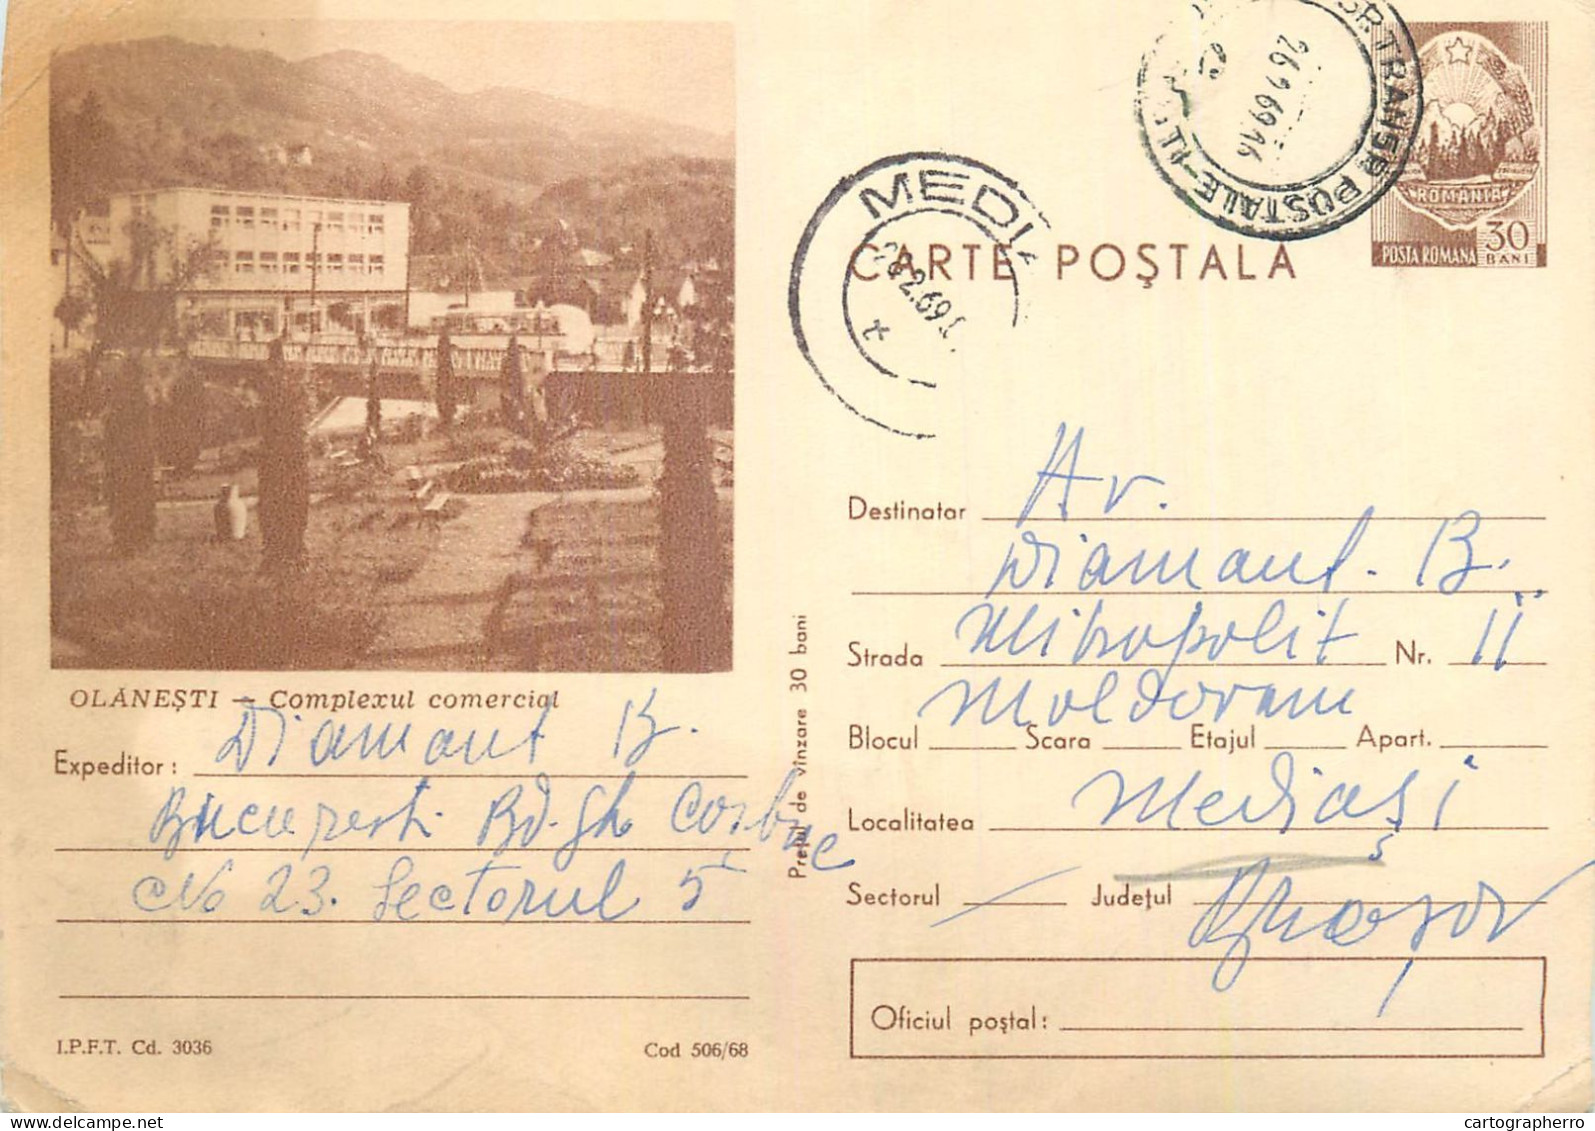 OLĂNEȘTI — Complexul comercial
Expeditor: Diamant B.
București Bd. Gh Coșbuc
No 23. Sectorul 5
I.P.F.T. Cd. 3036
Cod 506/68
Prețul de vînzare 30 bani
CARTE POȘTALĂ
MEDI
TRANSP POSTALE
26 2 69.16
ROMANIA
POSTA ROMANA 30 BANI
Destinatar Av.
Diamant. B.
Strada Mitropolit Nr. 11
Moldoveanu
Blocul Scara Etajul Apart.
Localitatea Mediași
Sectorul Județul Brașov
Oficiul poștal:
cartographerro